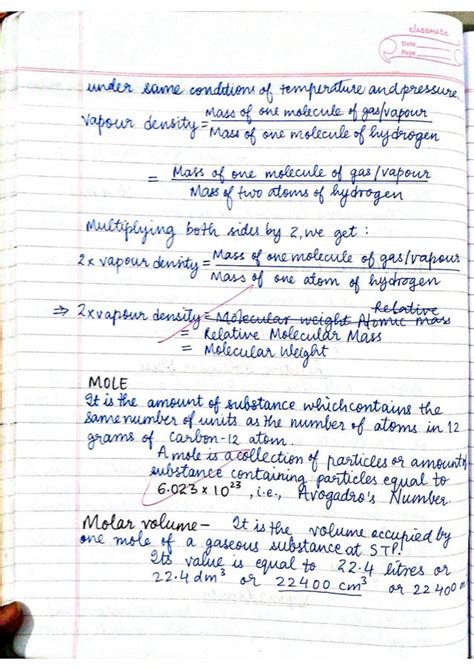 classmate
Date
Page
under same conditions of temperature and pressure.
Vapour density = Mass of one molecule of gas/vapour
Mass of one molecule of hydrogen
= Mass of one molecule of gas/vapour
Mass of two atoms of hydrogen
Multiplying both sides by 2, we get :
2 x vapour density = Mass of one molecule of gas/vapour
Mass of one atom of hydrogen
⇒ 2 x vapour density = Molecular weight Atomic mass Relative
= Relative Molecular Mass
= Molecular Weight
MOLE
It is the amount of substance which contains the
same number of units as the number of atoms in 12
grams of carbon-12 atom.
A mole is a collection of particles or amount of
substance containing particles equal to
6.023 x 10²³, i.e., Avogadro's Number.
Molar volume - It is the volume occupied by
one mole of a gaseous substance at STP.
Its value is equal to 22.4 litres or
22.4 dm³ or 22400 cm³ or 22400 m